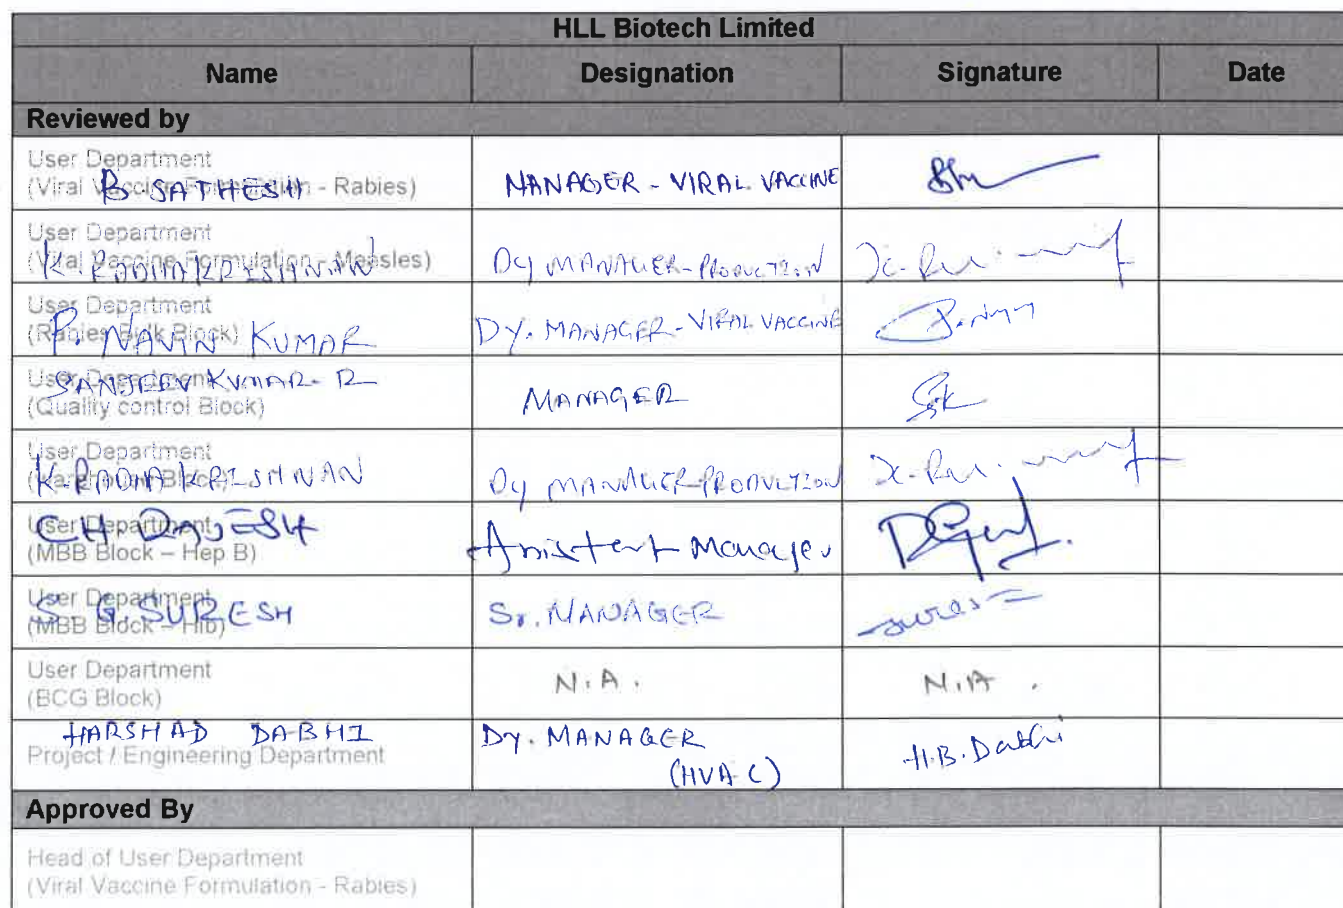 HLL Biotech Limited
Name Designation Signature Date
Reviewed by
User Department
(Viral Vaccine Formulation - Rabies)
B. SATHESH MANAGER - VIRAL VACCINE
User Department
(Viral Vaccine Formulation - Measles)
K. RADHAKRISHNAN Dy MANAGER-PRODUCTION
User Department
(Rabies Bulk Block)
P. NAVIN KUMAR DY. MANAGER - VIRAL VACCINE
User Department
SANJEEV KUMAR. R MANAGER
(Quality control Block)
User Department
K. RADHAKRISHNAN Dy MANAGER-PRODUCTION
User Department
CH. RAJESH Assistant Manager
(MBB Block – Hep B)
User Department
S. G. SURESH Sr. MANAGER suresh
(MBB Block – Hib)
User Department
(BCG Block) N.A. N.A.
HARSHAD DABHI Dy. MANAGER H.B. Dabhi
Project / Engineering Department
(HVAC)
Approved By
Head of User Department
(Viral Vaccine Formulation - Rabies)